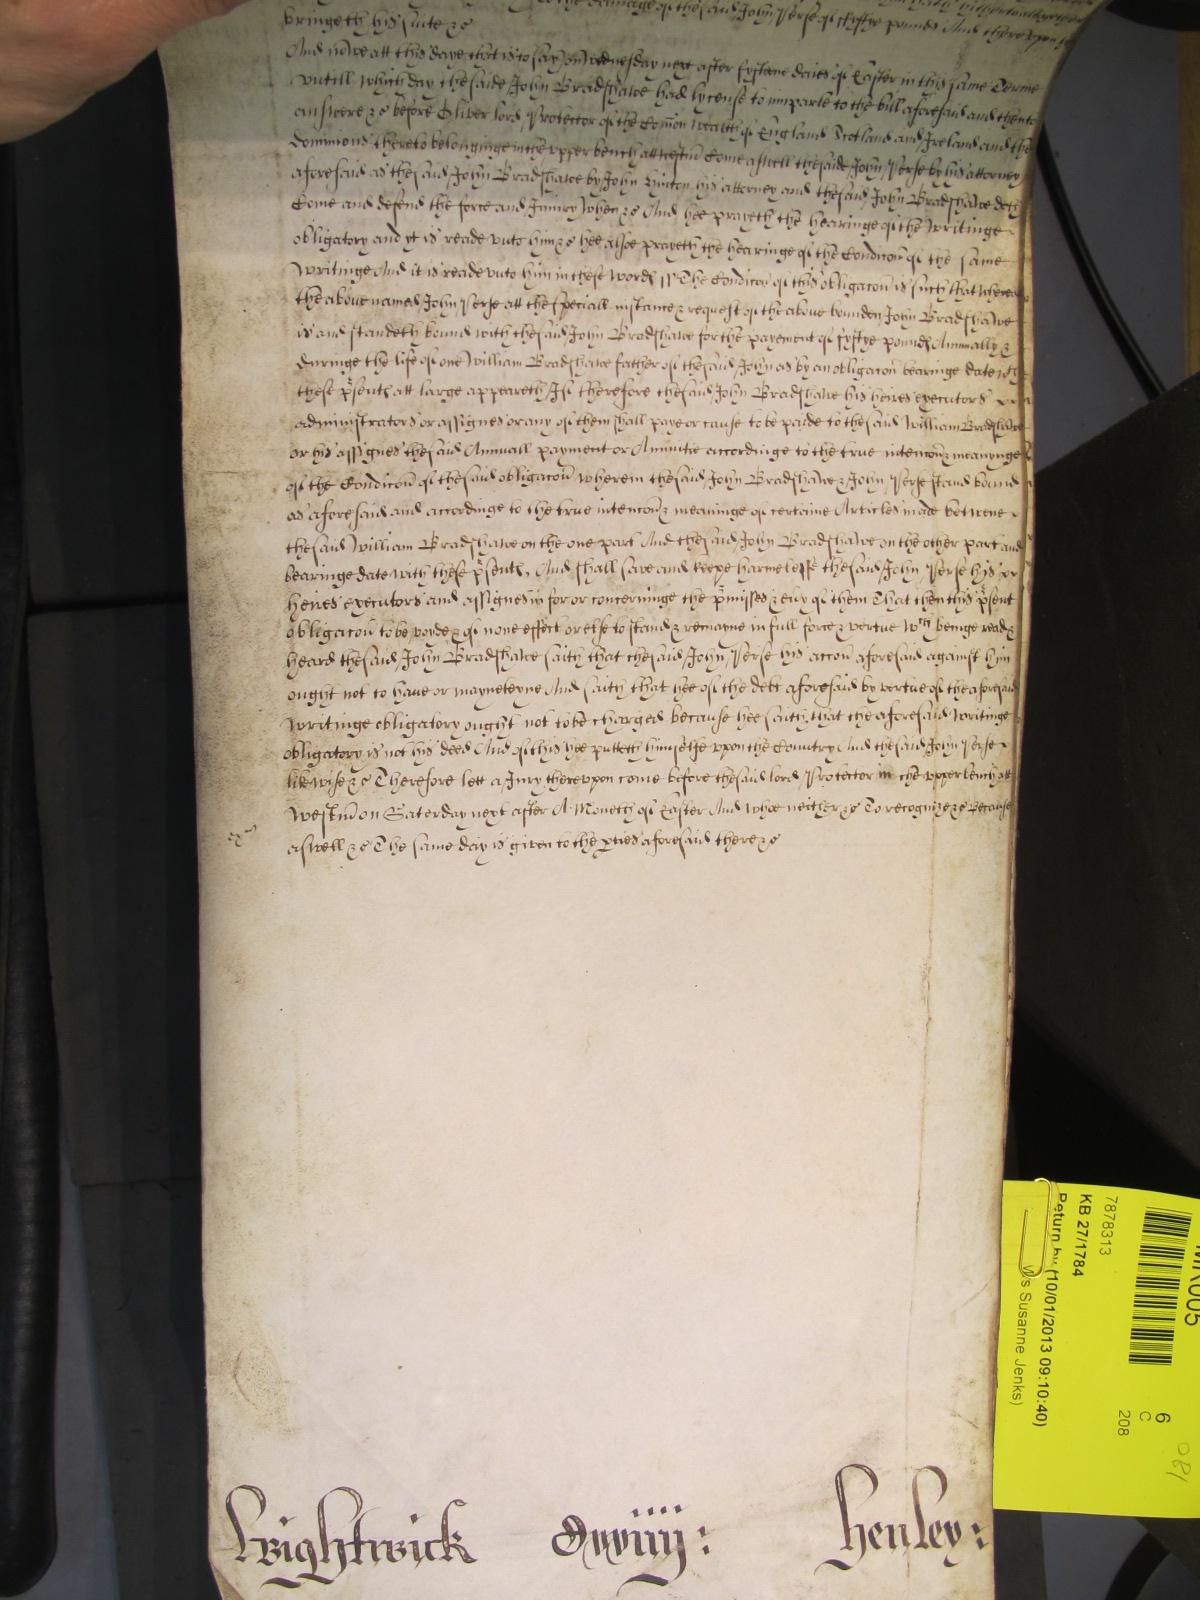 to the damage of the said John Verse of fyftye pounds And thereupon he
bringeth his suite &c
And nowe att this daye that is to say on Wednesday next after fyfteene daies of Easter in this same Terme
untill which day the saide John Bradshawe had lycense to imparle to the bill aforesaid and then to
answere &c before Oliver lord Protector of the Comon wealth of England Scotland and Ireland and the
dominions thereto belonginge in the upper bench att Westm Come aswell the saide John Verse by his attorney
aforesaid as the said John Bradshawe by John Lynton his attorney and the said John Bradshawe doth
Come and defend the force and Injury when &c And hee prayeth the hearinge of the Writinge
obligatory and yt is reade unto him &c hee alsoe prayeth the hearinge of the Condicion of the same
Writinge And it is reade unto him in these words The Condicon of this obligacon is such that whereas
the above named John Verse att the speciall instance & request of the above bounden John Bradshawe
is and standeth bound with the said John Bradshawe for the payement of fyftye pounds Annually &
duringe the life of one William Bradshawe father of the said John as by an obligacon bearinge date with
these psents att large appeareth If therefore the said John Bradshawe his heires executors
administrators or assignes or any of them shall paye or cause to be paide to the said William Bradshawe
or his assignes the said Annuall payment or Annuitie accordinge to the true intencon & meanynge
of the Condicon of the said obligacon wherein the said John Bradshawe & John Verse stand bound
as aforesaid and accordinge to the true intencon & meaninge of certaine Articles made betweene
the said William Bradshawe on the one part And the said John Bradshawe on the other part and
bearinge date with these psents, And shall save and keepe harmelesse the said John Verse his
heires executors and assignes in for or concerninge the pmisses & evy of them That then this psent
obligacon to be voyde & of none effect or else to stand & remayne in full force & vertue wch beinge read &
heard the said John Bradshawe saith that the said John Verse his accon aforesaid against him
ought not to have or maynteyne And saith that hee of the debt aforesaid by vertue of the aforesaid
Writinge obligatory ought not to be charged because hee saith that the aforesaid Writinge
obligatory is not his deed And of this hee putteth himselfe upon the Country And the said John Verse
likewise &c Therefore lett a Jury thereupon come before the said lord Protector in the upper bench att
Westm on Saterday next after A Moneth of Easter And whoe neither &c To recognize &c Because
aswell &c The same day is given to the pties aforesaid there &c
Wightwick
Henley:
MR005
6
C
208
7878313
KB 27/1784
Return by (10/01/2013 09:10:40)
Ms Susanne Jenks)